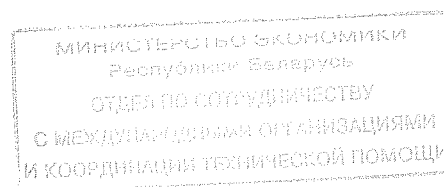 МИНИСТЕРСТВО ЭКОНОМИКИ
Республики Беларусь
ОТДЕЛ ПО СОТРУДНИЧЕСТВУ
С МЕЖДУНАРОДНЫМИ ОРГАНИЗАЦИЯМИ
И КООРДИНАЦИИ ТЕХНИЧЕСКОЙ ПОМОЩИ